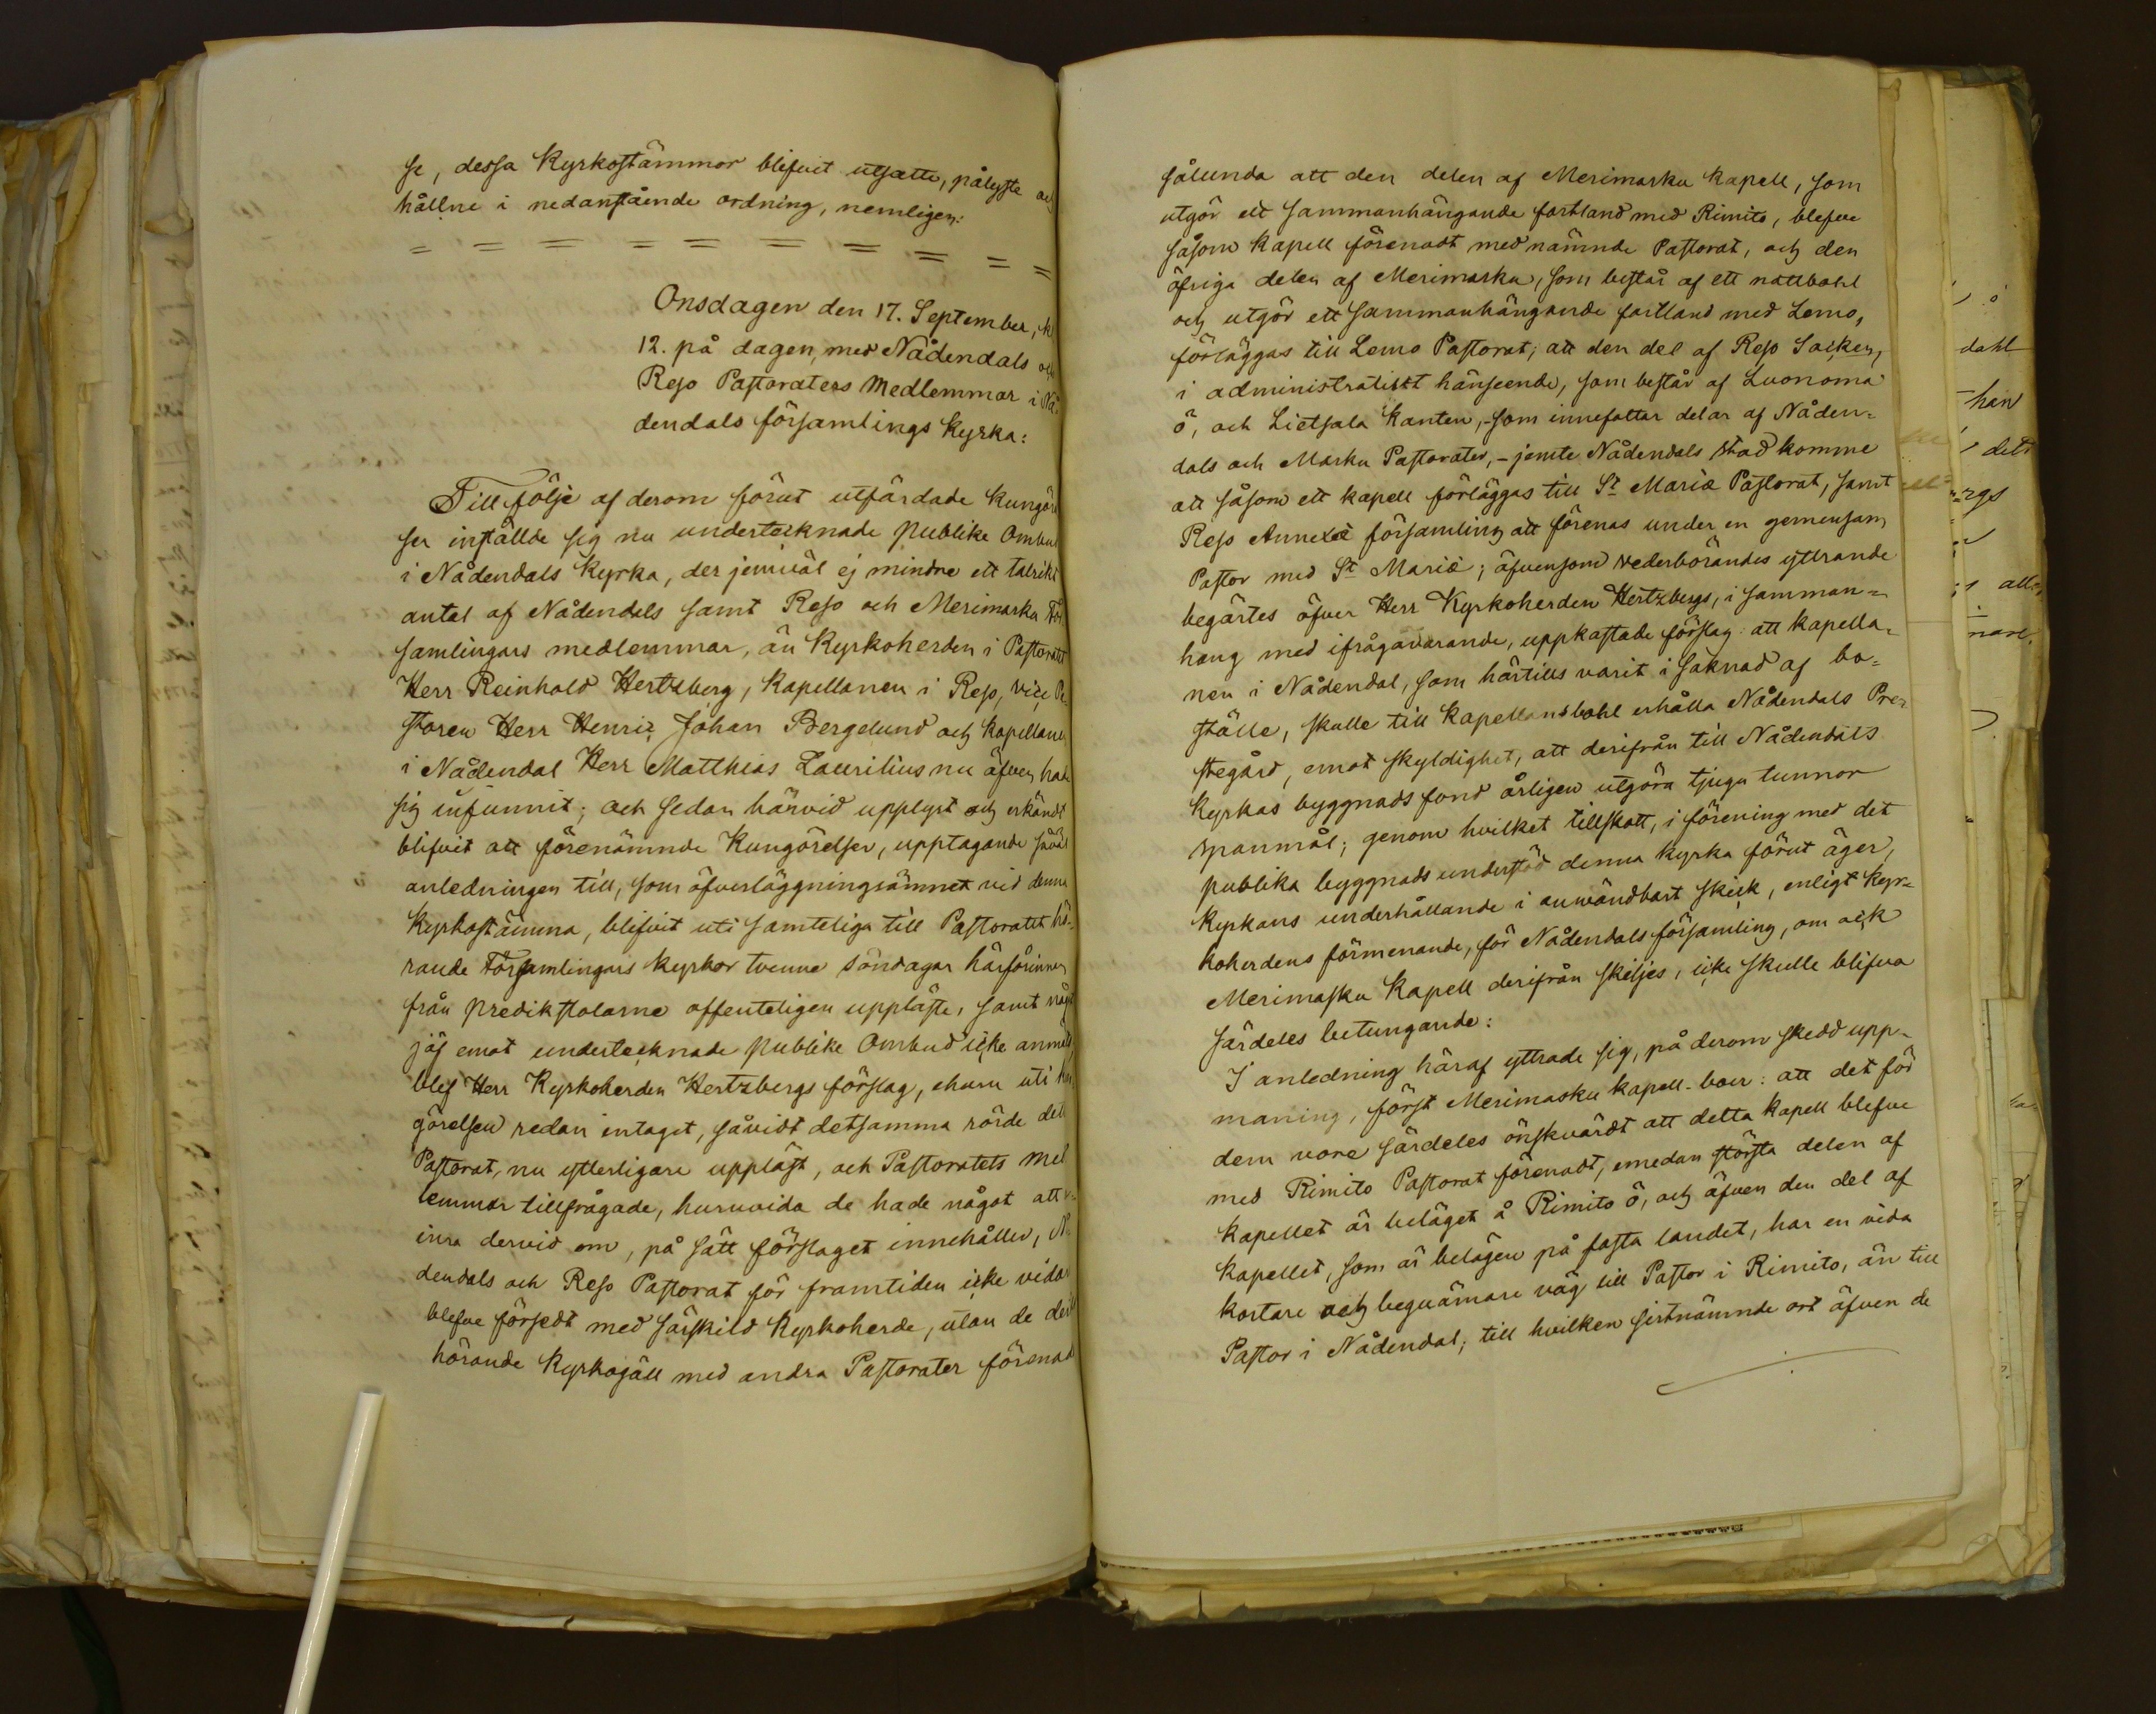 se, dessa Kyrkostämmor blifvit utsatte, pålyste och
hållne i nedanstående ordning, nemligen:
= = = = = = = = = =
Onsdagen den 17. September, k
12. på dagen, med Nådendals och
Reso Pastoraters Medlemmar i Nå-
dendals församlings Kyrka:
Till följe af derom förut utfärdade Kungörel
ser inställde sig nu undertecknade publike Ombud
i Nådendals Kyrka, der jemväl ej mindre ett talrikt
antal af Nådendals samt Reso och Merimasku För
samlingars medlemmar, än Kyrkoherden i Pastoratet
Herr Reinhold Hertzberg, Kapellanen i Reso, vice Pa-
storen Herr Henric Johan Bergelund och Kapellanen
i Nådendal Herr Matthias Laurilius nu äfven hade
sig infunnit; och sedan härvid upplyst och erkändt
blifvit att förenämnde Kungörelser, upptagande såväl
anledningen till, som öfverläggningsämnet vid denna
Kyrkostämma, blifvit uti samteliga till Pastoratet hö-
rande Församlingars kyrkor tvenne söndagar härförinnan
från predikstolarne offenteligen uppläste, samt något
jäf emot undertecknade publike Ombud icke anmäldt,
blef Herr Kyrkoherden Hertzbergs förslag, ehuru uti kun
görelsen redan intaget, såvidt detsamma rörde dett
Pastorat, nu ytterligare uppläst, och Pastoratets med
lemmar tillfrågade, huruvida de hade något att
inra dervid om, på sätt förslaget innehåller, Nå
dendals och Reso Pastorat för framtiden icke vidare
blefve försedt med särskild Kyrkoherde, utan de der
hörande Kyrkogäll med andra Pastorater förenad
sålunda att den delen af Merimasku kapell, som
utgör ett sammanhängande fastland med Rimito, blefve
såsom kapell förenadt med nämnde Pastorat, och den
öfriga delen af Merimasku, som består af ett nattbohl
och utgör ett sammanhängande fastland med Lemo,
förläggas till Lemo Pastorat; att den del af Reso Socken,
i administratift hänseende, som består af Luonoma
ö, och Lietsala kanten, - som innefattar delar af Nåden-
dals och Masku Pastorater, - jemte Nådendals stad komme
att såsom ett kapell förläggas till St Mariæ Pastorat, samt
Reso Annexæ församling att förenas under en gemensam
Pastor med St Mariæ; äfvensom vederbörandes yttrande
begärtes öfver Herr Kyrkoherden Hertzbergs, i samman-
hang med ifrågavarande, uppkastade förslag: att kapella-
nen i Nådendal, som härtills varit i saknad af bo-
ställe, skulle till Kapellansbohl erhålla Nådendals Pre-
stegård, emot skyldighet, att derifrån till Nådendals
Kyrkas byggnads fond årligen utgöra tjugu tunnor
spanmål; genom hvilket tillskott, i förening med det
publika byggnads understöd denna kyrka förut äger,
kyrkans underhållande i användbart skick, enligt Kyr-
koherdens förmenande, för Nådendals församling, om ock
Merimasku Kapell derifrån skiljes, icke skulle blifva
särdeles betungande:
I anledning häraf yttrade sig, på derom skedd upp-
maning, först Merimasku kapell-boer: att det för
dem vore särdeles önskvärdt att detta kapell blefve
med Rimito Pastorat förenadt, emedan största delen af
kapellet är beläget å Rimito ö, och äfven den del af
kapellet, som är belägen på fasta landet, har en vida
kortare och beqvämare väg till Pastor i Rimito, än till
Pastor i Nådendal; till hvilken sistnämnde ort äfven de
dahl
han
det
rgs